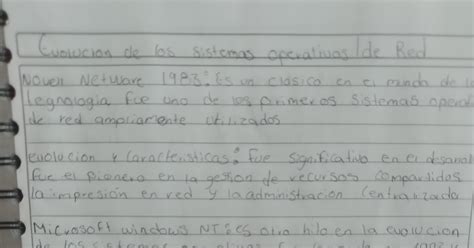 Evolucion de los sistemas operativos/de Red
Noven Netware 1983: Es un clásico en el mundo de l
tegnologia fue uno de los primeros sistemas opera
de red ampliamente utilizados
evolucion y caracteristicas: Fue significativo en el desarrol
fue el pionero en la gestion de recursos compartidos
la impresión en red y la administracion centralizada
Microsoft windows NT: Es otro hilo en la evolucion
de los sistemas